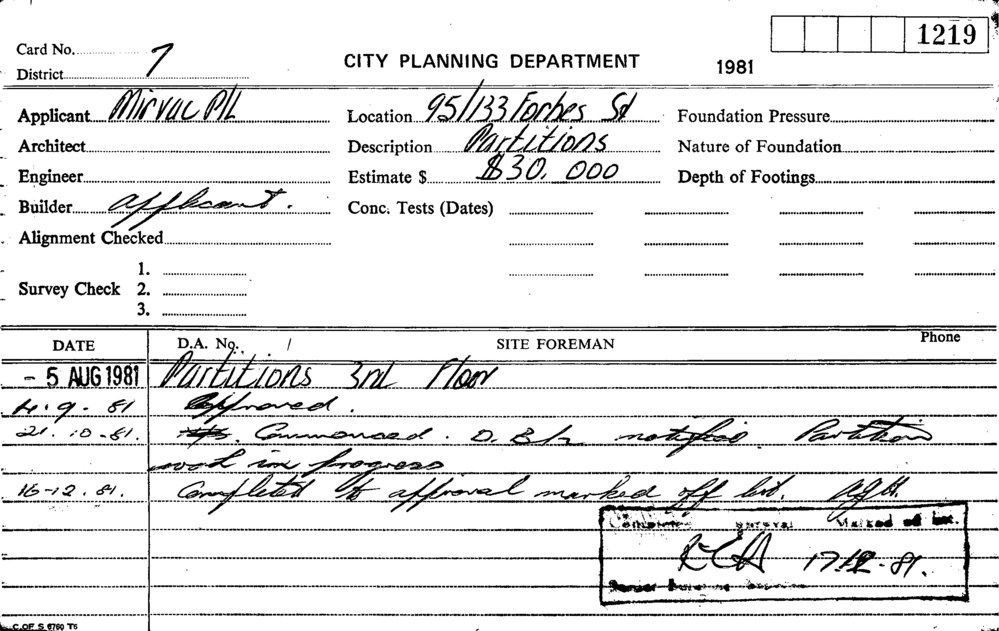 1219
Card No. 7
CITY PLANNING DEPARTMENT 1981
District
Applicant Mirvac P/L Location 95/133 Forbes St Foundation Pressure
Architect Description Partitions Nature of Foundation
Engineer Estimate $ $30,000 Depth of Footings
Builder applicant. Conc. Tests (Dates)
Alignment Checked
1.
Survey Check 2.
3.
DATE D.A. No. / SITE FOREMAN Phone
- 5 AUG 1981 Partitions 3rd Floor
4.9.81 Approved.
21.10.81. Commenced. notified Partition
work in progress
16-12.81. Completed to approval marked off list.
Completed approval Marked off list.
17.12.81.
C. OF S 6760 T6